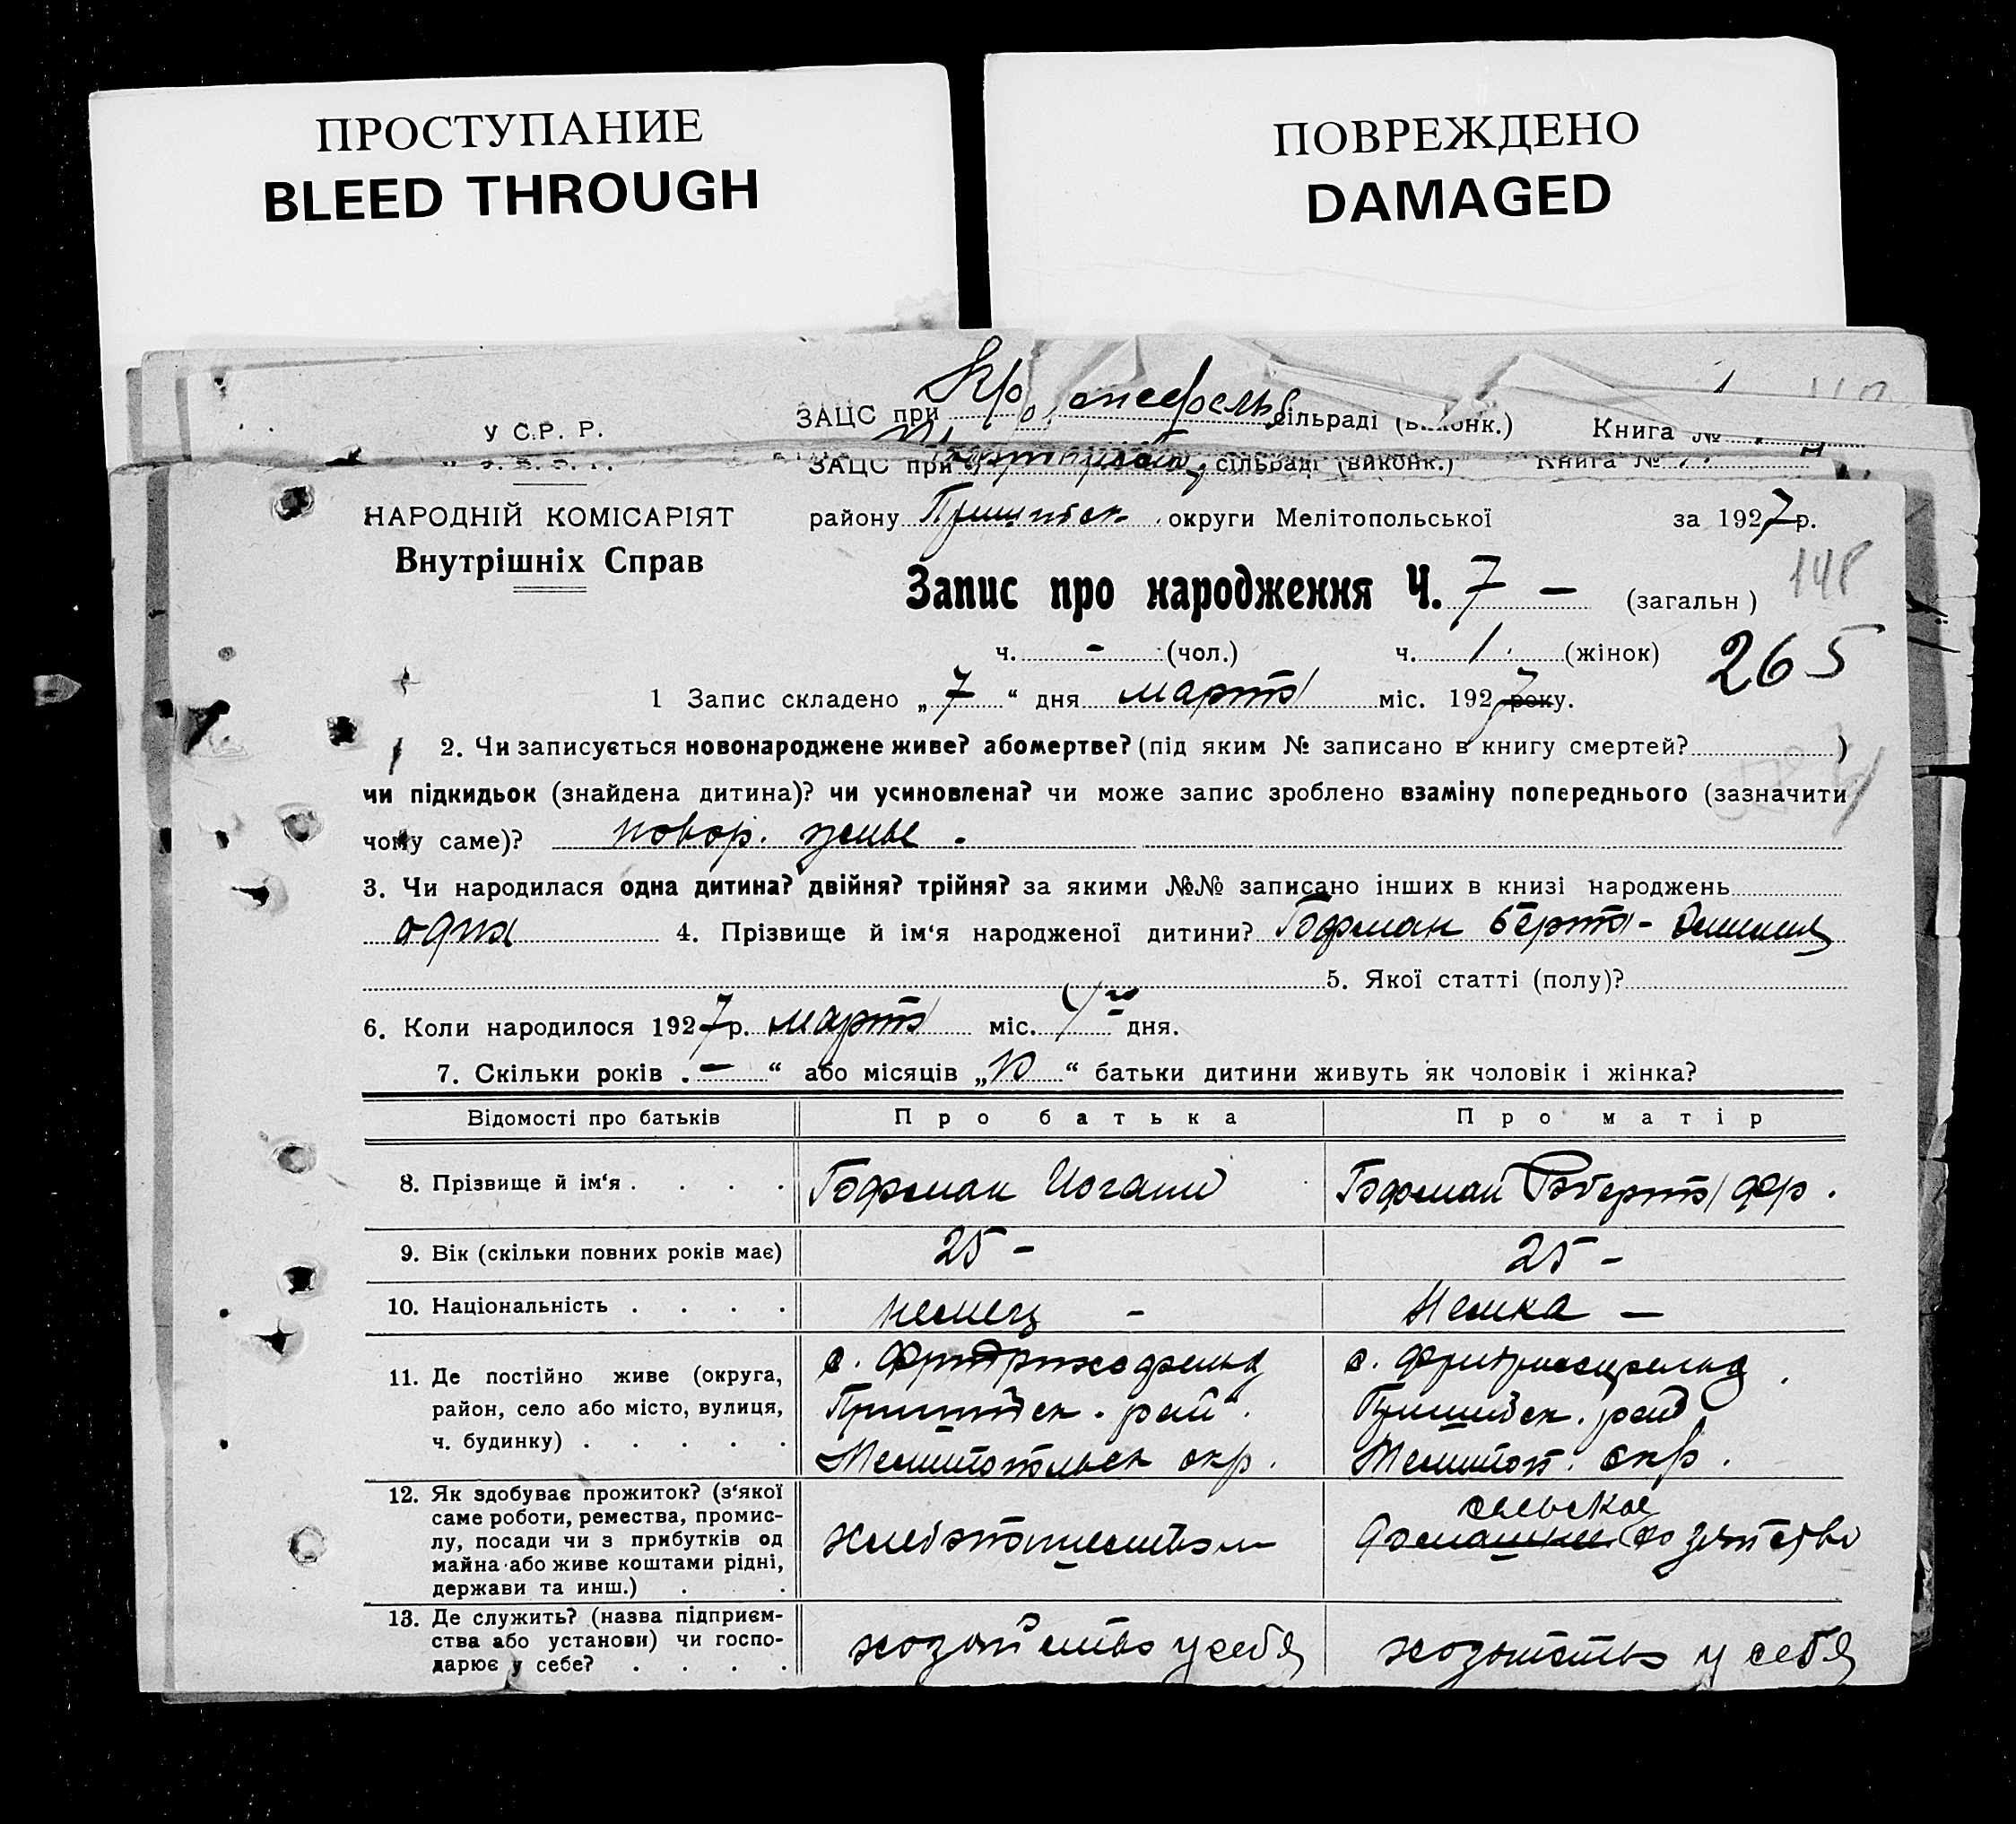 ПРОСТУПАНИЕ
BLEED THROUGH
ПОВРЕЖДЕНО
DAMAGED
У С.Р.Р.
ЗАЦС при сільраді (виконк.) Книга №
ЗАЦС при сільраді (виконк.) Книга №
НАРОДНІЙ КОМІСАРІЯТ
Внутрішніх Справ
району Пришибск. округи Мелітопольської за 1927 р.
148
Запис про народження Ч. 7 – (загальн)
ч. – (чол.) ч. 1 (жінок)
265
1 Запис складено „7“ дня марта міс. 1927 року.
2. Чи записується новонароджене живе? або мертве? (під яким № записано в книгу смертей? )
чи підкидьок (знайдена дитина)? чи усиновлена? чи може запис зроблено взаміну попереднього (зазначити
чому саме)? новор. живые.
3. Чи народилася одна дитина? двійня? трійня? за якими №№ записано інших в книзі народжень
одна 4. Прізвище й ім'я народженої дитини? Гофман Берта-
5. Якої статті (полу)?
6. Коли народилося 1927 р. марта міс. дня.
7. Скільки років „–“ або місяців „10“ батьки дитини живуть як чоловік і жінка?
Відомості про батьків Про батька Про матір
8. Прізвище й ім'я . . . . Гофман Иоганн Гофман
9. Вік (скільки повних років має) 25 – 25 –
10. Національність . . . . немец – Немка –
11. Де постійно живе (округа, с. Фридрихсфельд с. Фридрихсфельд
район, село або місто, вулиця, Пришибск. рай. Пришибск. рай
ч. будинку) . . . . . Мелитопольск окр. Мелитоп. окр.
12. Як здобуває прожиток? (з'якої
саме роботи, ремества, промис-
лу, посади чи з прибутків од
майна або живе коштами рідні,
держави та инш.) . .
хлебопашеством
сельское
домашнее хозяйство
13. Де служить? (назва підприєм-
ства або установи) чи госпо-
дарює у себе? . . . .
хозяйство у себя хозяйство у себя